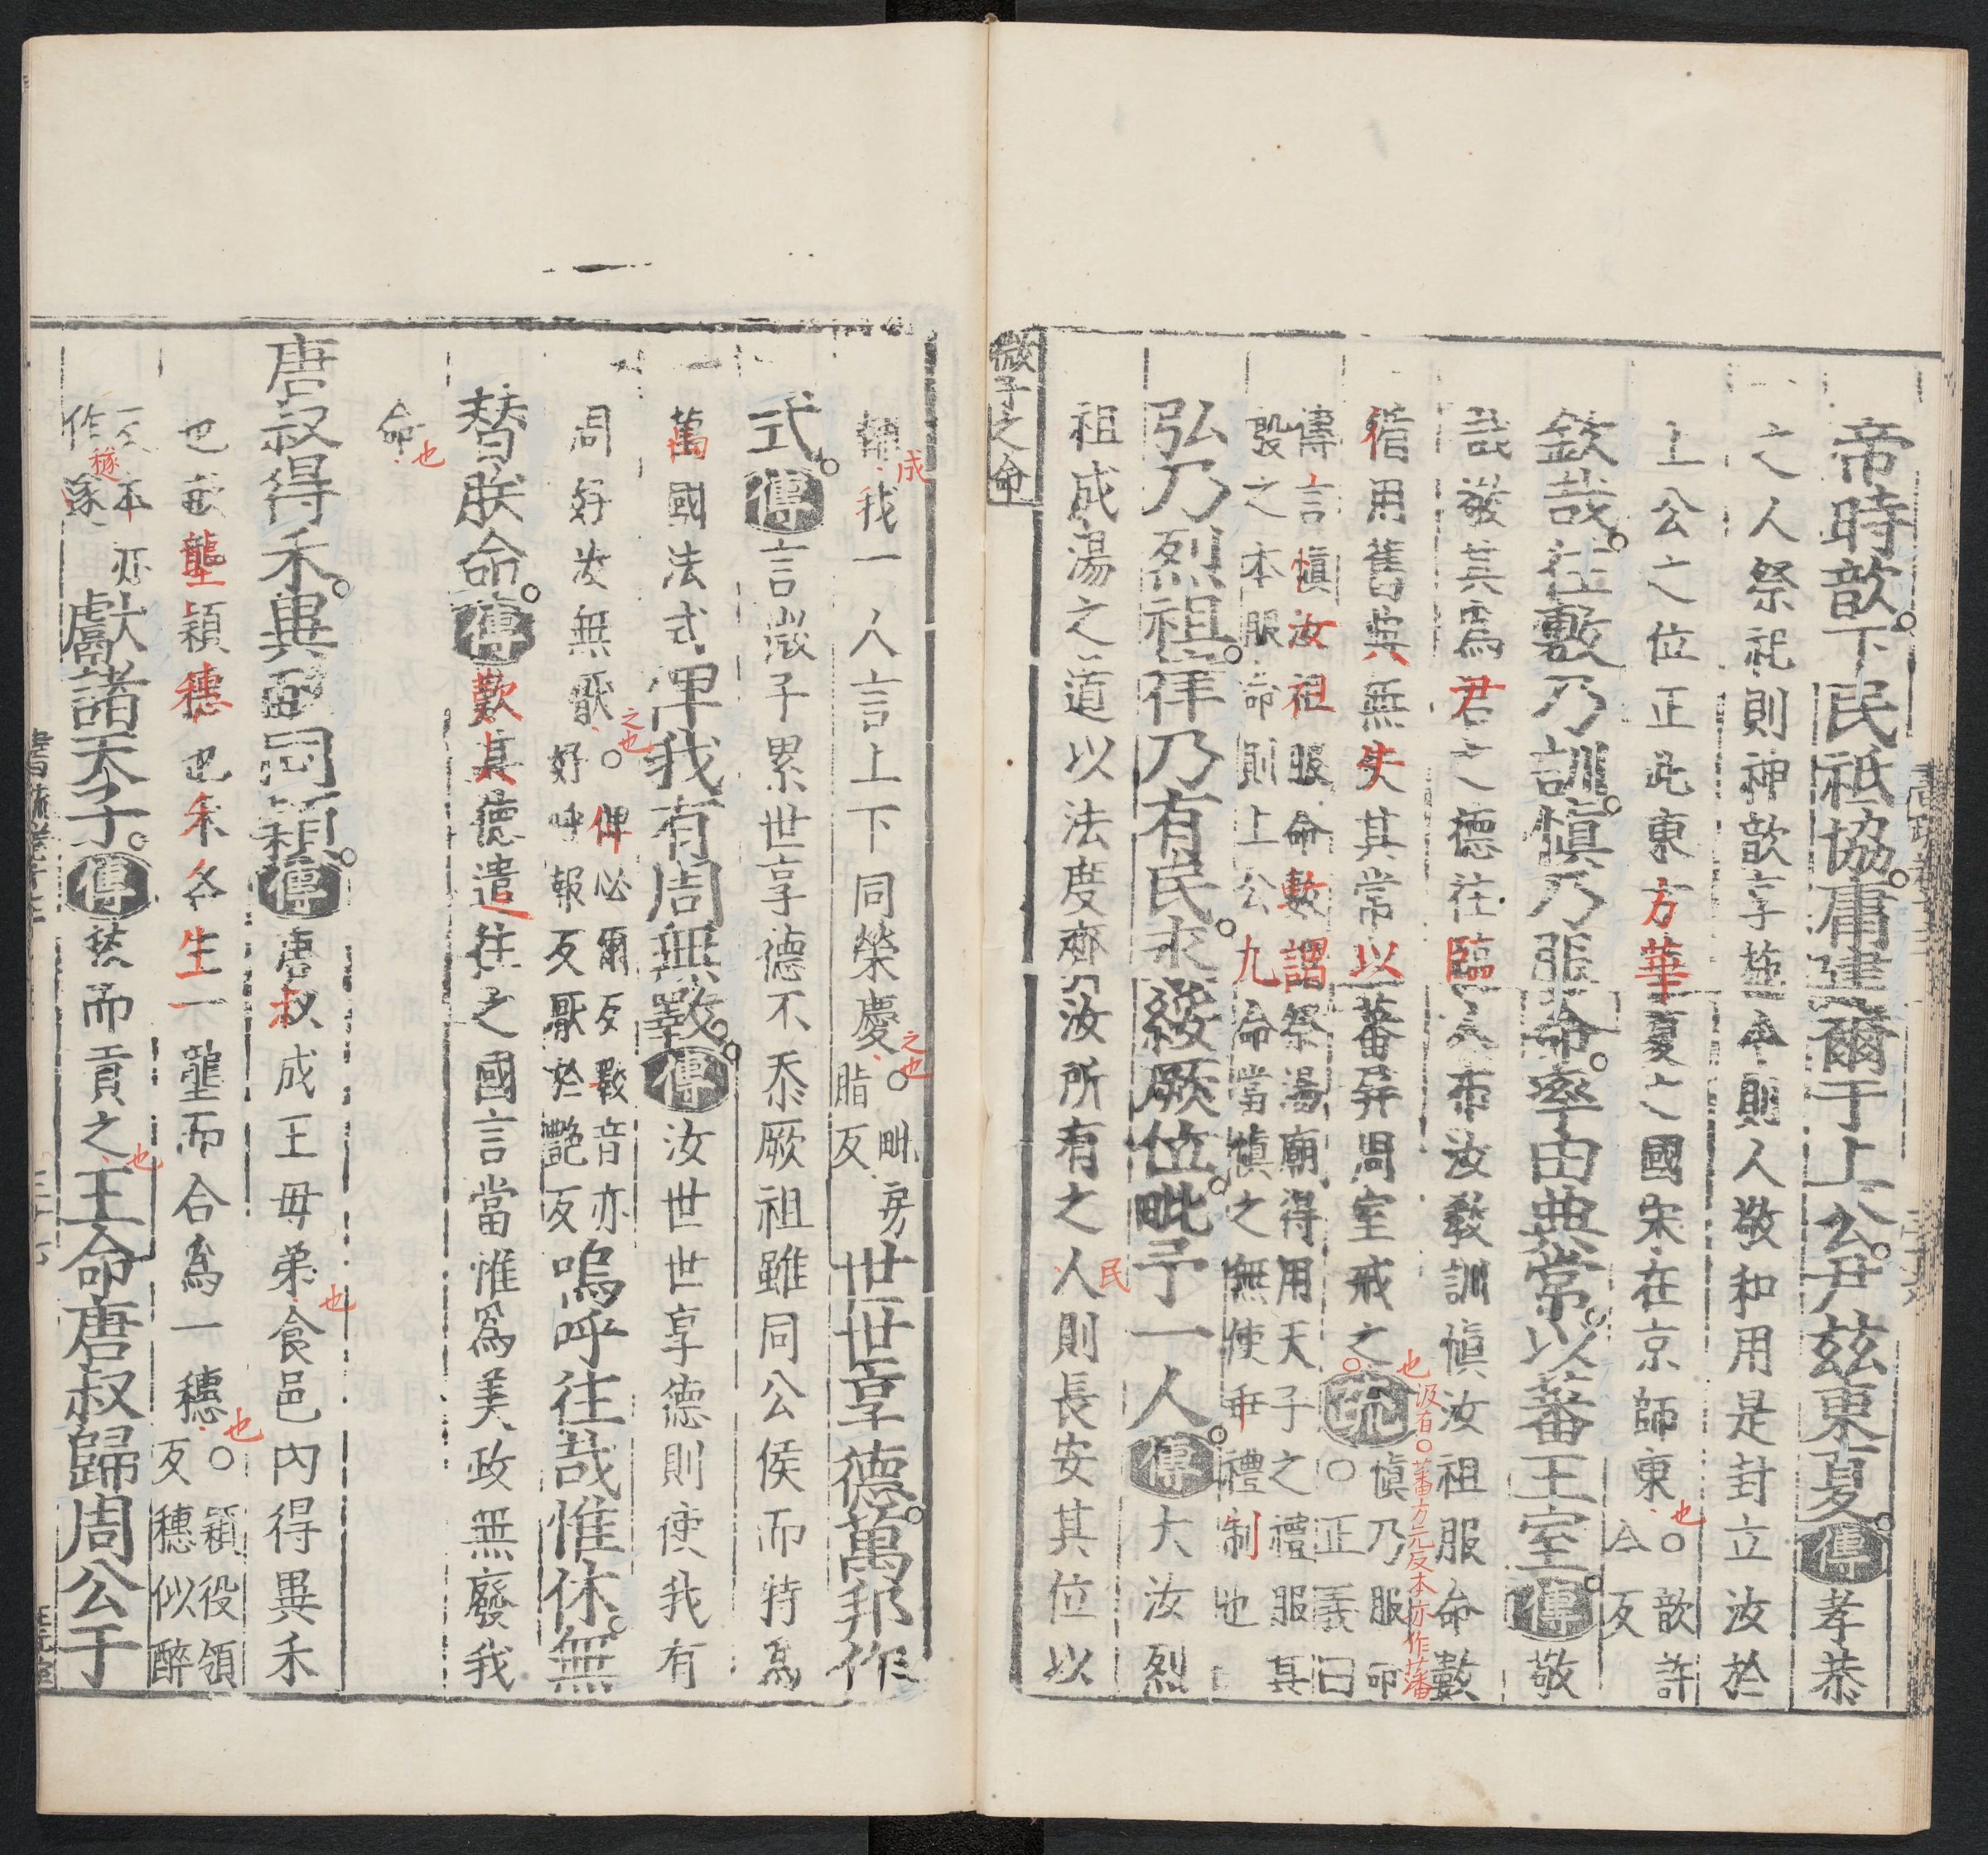 帝時歆下民祗協庸建爾于上公尹茲東夏傳孝恭
之人祭祀則神歆享施令則人敬和用是封立汝於
上公之位正此東方華夏之國宋在京師東也○歆許
今反
欽哉往敷乃訓慎乃服命率由典常以蕃王室傳敬
哉敬其爲君之德往臨人布汝教訓慎汝祖服命數
循用舊典無失其常以蕃屏周室戒之也疏○慎乃服命
正義曰
汲有○蕃方元反本亦作藩
傳言慎汝祖服命數謂祭湯廟得用天子之禮服其
殷之本服命則上公九命當慎之無使乖禮制也
弘乃烈祖律乃有民永綏厥位毗予一人傳大汝烈
祖成湯之道以法度齊汝所有之人民則長安其位以
微子之命
輔成我一人言上下同榮慶之也○毗房
脂反
世世享德萬邦作
式傳言微子累世享德不忝厥祖雖同公侯而特爲
萬國法式俾我有周無斁傳汝世世享德則使我有
周好汝無厭之也○俾必爾反斁音亦
好呼報反厭於艷反
嗚呼往哉惟休無
替朕命傳歎其德遣往之國言當惟爲美政無廢我
命也
唐叔得禾異畝同穎傳唐叔成王母弟食邑内得異禾也
也畝壟穎穗也禾各生一壟而合爲一穗也○穎役領
反穗似醉
反本亦
作遂穟
獻諸天子傳拔而貢之也王命唐叔歸周公于